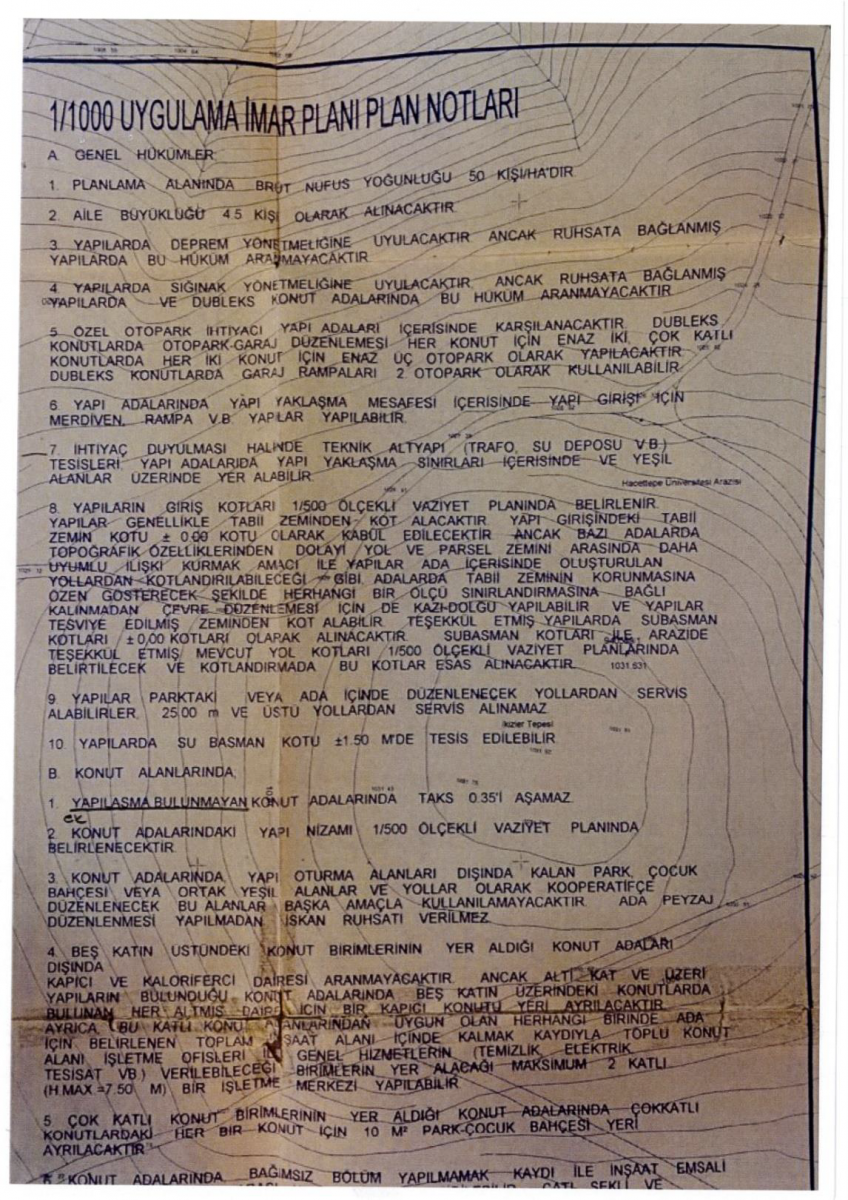 1/1000 UYGULAMA İMAR PLANI PLAN NOTLARI
A. GENEL HÜKÜMLER
1. PLANLAMA ALANINDA BRÜT NÜFUS YOĞUNLUĞU 50 KİŞİ/HA'DIR
2. AİLE BÜYÜKLÜĞÜ 4.5 KİŞİ OLARAK ALINACAKTIR
3. YAPILARDA DEPREM YÖNETMELİĞİNE UYULACAKTIR ANCAK RUHSATA BAĞLANMIŞ
YAPILARDA BU HÜKÜM ARANMAYACAKTIR
4. YAPILARDA SIĞINAK YÖNETMELİĞİNE UYULACAKTIR. ANCAK RUHSATA BAĞLANMIŞ
YAPILARDA VE DUBLEKS KONUT ADALARINDA BU HÜKÜM ARANMAYACAKTIR
5 ÖZEL OTOPARK İHTİYACI YAPI ADALARI İÇERİSİNDE KARŞILANACAKTIR. DUBLEKS
KONUTLARDA OTOPARK-GARAJ DÜZENLEMESİ HER KONUT İÇİN ENAZ İKİ, ÇOK KATLI
KONUTLARDA HER İKİ KONUT İÇİN ENAZ ÜÇ OTOPARK OLARAK YAPILACAKTIR
DUBLEKS KONUTLARDA GARAJ RAMPALARI 2 OTOPARK OLARAK KULLANILABİLİR
6 YAPI ADALARINDA YAPI YAKLAŞMA MESAFESİ İÇERİSİNDE YAPI GİRİŞİ İÇİN
MERDİVEN, RAMPA V.B. YAPILAR YAPILABİLİR
7. İHTİYAÇ DUYULMASI HALİNDE TEKNİK ALTYAPI (TRAFO, SU DEPOSU V.B.)
TESİSLERİ YAPI ADALARIDA YAPI YAKLAŞMA SINIRLARI İÇERİSİNDE VE YEŞİL
ALANLAR ÜZERİNDE YER ALABİLİR
Hacettepe Üniversitesi Arazisi
8. YAPILARIN GİRİŞ KOTLARI 1/500 ÖLÇEKLİ VAZİYET PLANINDA BELİRLENİR.
YAPILAR GENELLİKLE TABİİ ZEMİNDEN KOT ALACAKTIR YAPI GİRİŞİNDEKİ TABİİ
ZEMİN KOTU ± 0.00 KOTU OLARAK KABUL EDİLECEKTİR ANCAK BAZI ADALARDA
TOPOĞRAFİK ÖZELLİKLERİNDEN DOLAYI YOL VE PARSEL ZEMİNİ ARASINDA DAHA
UYUMLU İLİŞKİ KURMAK AMACI İLE YAPILAR ADA İÇERİSİNDE OLUŞTURULAN
YOLLARDAN KOTLANDIRILABİLECEĞİ GİBİ ADALARDA TABİİ ZEMİNİN KORUNMASINA
ÖZEN GÖSTERECEK ŞEKİLDE HERHANGİ BİR ÖLÇÜ SINIRLANDIRMASINA BAĞLI
KALINMADAN ÇEVRE DÜZENLEMESİ İÇİN DE KAZI-DOLGU YAPILABİLİR VE YAPILAR
TESVİYE EDİLMİŞ ZEMİNDEN KOT ALABİLİR. TEŞEKKÜL ETMİŞ YAPILARDA SUBASMAN
KOTLARI ±0,00 KOTLARI OLARAK ALINACAKTIR SUBASMAN KOTLARI İLE ARAZİDE
TEŞEKKÜL ETMİŞ MEVCUT YOL KOTLARI 1/500 ÖLÇEKLİ VAZİYET PLANLARINDA
BELİRTİLECEK VE KOTLANDIRMADA BU KOTLAR ESAS ALINACAKTIR. 1031.531
9 YAPILAR PARKTAKİ VEYA ADA İÇİNDE DÜZENLENEÇEK YOLLARDAN SERVİS
ALABİLİRLER. 25.00 m VE ÜSTÜ YOLLARDAN SERVİS ALINAMAZ
İkizler Tepesi
10. YAPILARDA SU BASMAN KOTU ±1.50 M'DE TESİS EDİLEBİLİR
B. KONUT ALANLARINDA;
1. YAPILAŞMA BULUNMAYAN KONUT ADALARINDA TAKS 0.35'İ AŞAMAZ
ek
2. KONUT ADALARINDAKİ YAPI NİZAMI 1/500 ÖLÇEKLİ VAZİYET PLANINDA
BELİRLENECEKTİR
3. KONUT ADALARINDA, YAPI OTURMA ALANLARI DIŞINDA KALAN PARK, ÇOCUK
BAHÇESİ VEYA ORTAK YEŞİL ALANLAR VE YOLLAR OLARAK KOOPERATİFÇE
DÜZENLENECEK BU ALANLAR BAŞKA AMAÇLA KULLANILAMAYACAKTIR. ADA PEYZAJ
DÜZENLENMESİ YAPILMADAN İSKAN RUHSATI VERİLMEZ
4. BEŞ KATIN ÜSTÜNDEKİ KONUT BİRİMLERİNİN YER ALDIĞI KONUT ADALARI
DIŞINDA
KAPICI VE KALORİFERCİ DAİRESİ ARANMAYACAKTIR. ANCAK ALTI KAT VE ÜZERİ
YAPILARIN BULUNDUĞU KONUT ADALARINDA BEŞ KATIN ÜZERİNDEKİ KONUTLARDA
BULUNAN HER ALTMIŞ DAİRE İÇİN BİR KAPICI KONUTU YERİ AYRILACAKTIR
AYRICA BU KATLI KONUT ALANLARINDAN UYGUN OLAN HERHANGİ BİRİNDE ADA
İÇİN BELİRLENEN TOPLAM İNŞAAT ALANI İÇİNDE KALMAK KAYDIYLA TOPLU KONUT
ALANI İŞLETME OFİSLERİ GENEL HİZMETLERİN (TEMİZLİK, ELEKTRİK
TESİSAT VB.) VERİLEBİLECEĞİ BİRİMLERİN YER ALACAĞI MAKSİMUM 2 KATLI
(H.MAX =7.50 M) BİR İŞLETME MERKEZİ YAPILABİLİR
5 ÇOK KATLI KONUT BİRİMLERİNİN YER ALDIĞI KONUT ADALARINDA ÇOKKATLI
KONUTLARDAKİ HER BİR KONUT İÇİN 10 M² PARK-ÇOCUK BAHÇESİ YERİ
AYRILACAKTIR
KONUT ADALARINDA BAĞIMSIZ BÖLÜM YAPILMAMAK KAYDI İLE İNŞAAT EMSALİ